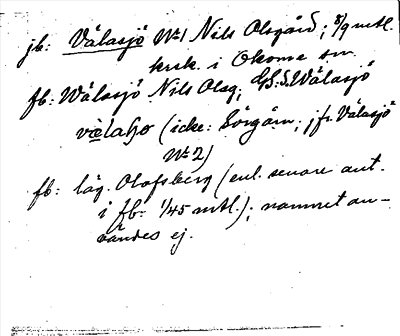 jb: Välasjö No 1 Nils Olsgård; 3/9 mtl.
krk. i Okome sn.
fb: Wälasjö Nils Olsg; GS:S. Wälasjö
(icke: Sörgårn; jfr Välasjö
No 2)
fb: läg. Olofsberg (enl. senare ant.
i fb: 1/45 mtl.); namnet an-
vändes ej.